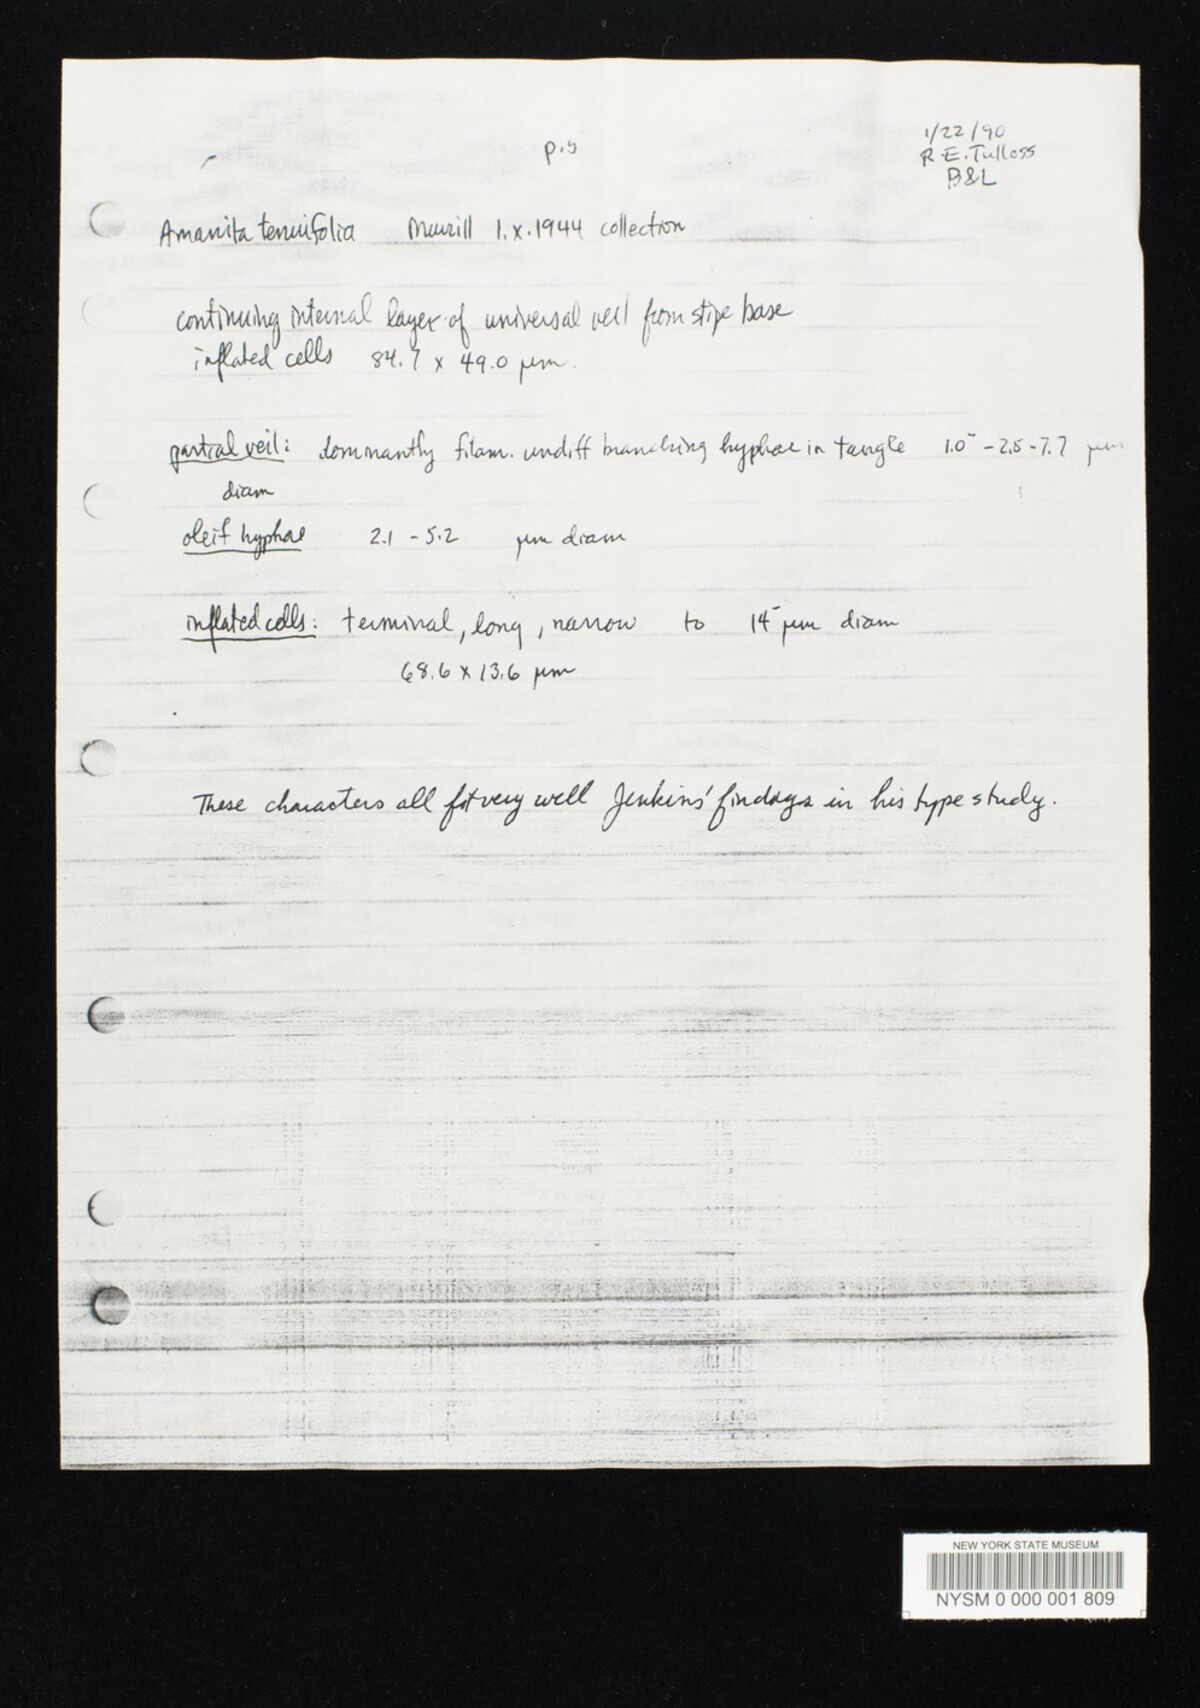 p.5
1/22/90
R.E.Tulloss
B&L
Amanita tenuifolia Murrill 1.x.1944 collection
continuing internal layer of universal veil from stipe base
inflated cells 84.7 x 49.0 µm.
partial veil: dominantly filam. undiff branching hyphae in tangle 1.0- - 2.5 - 7.7 µm
diam
oleif hyphae 2.1 - 5.2 µm diam
inflated cells: terminal, long, narrow to 14- µm diam
68.6 x 13.6 µm
These characters all fit very well Jenkins' findings in his type study.
NEW YORK STATE MUSEUM
NYSM 0 000 001 809